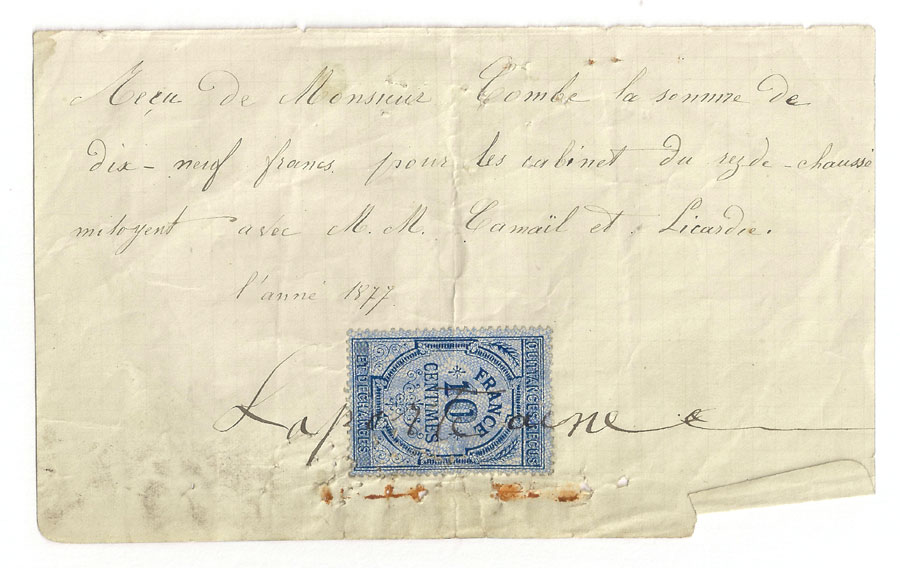 Reçu de Monsieur Combe la somme de
dix-neuf francs pour les cabinet du rez de-chaussé
mitoyent avec M. M. Camaïl et Licardie.
l'anné 1877
QUITTANCES REÇUS
FRANCE
10
CENTIMES
ET DECHARGES